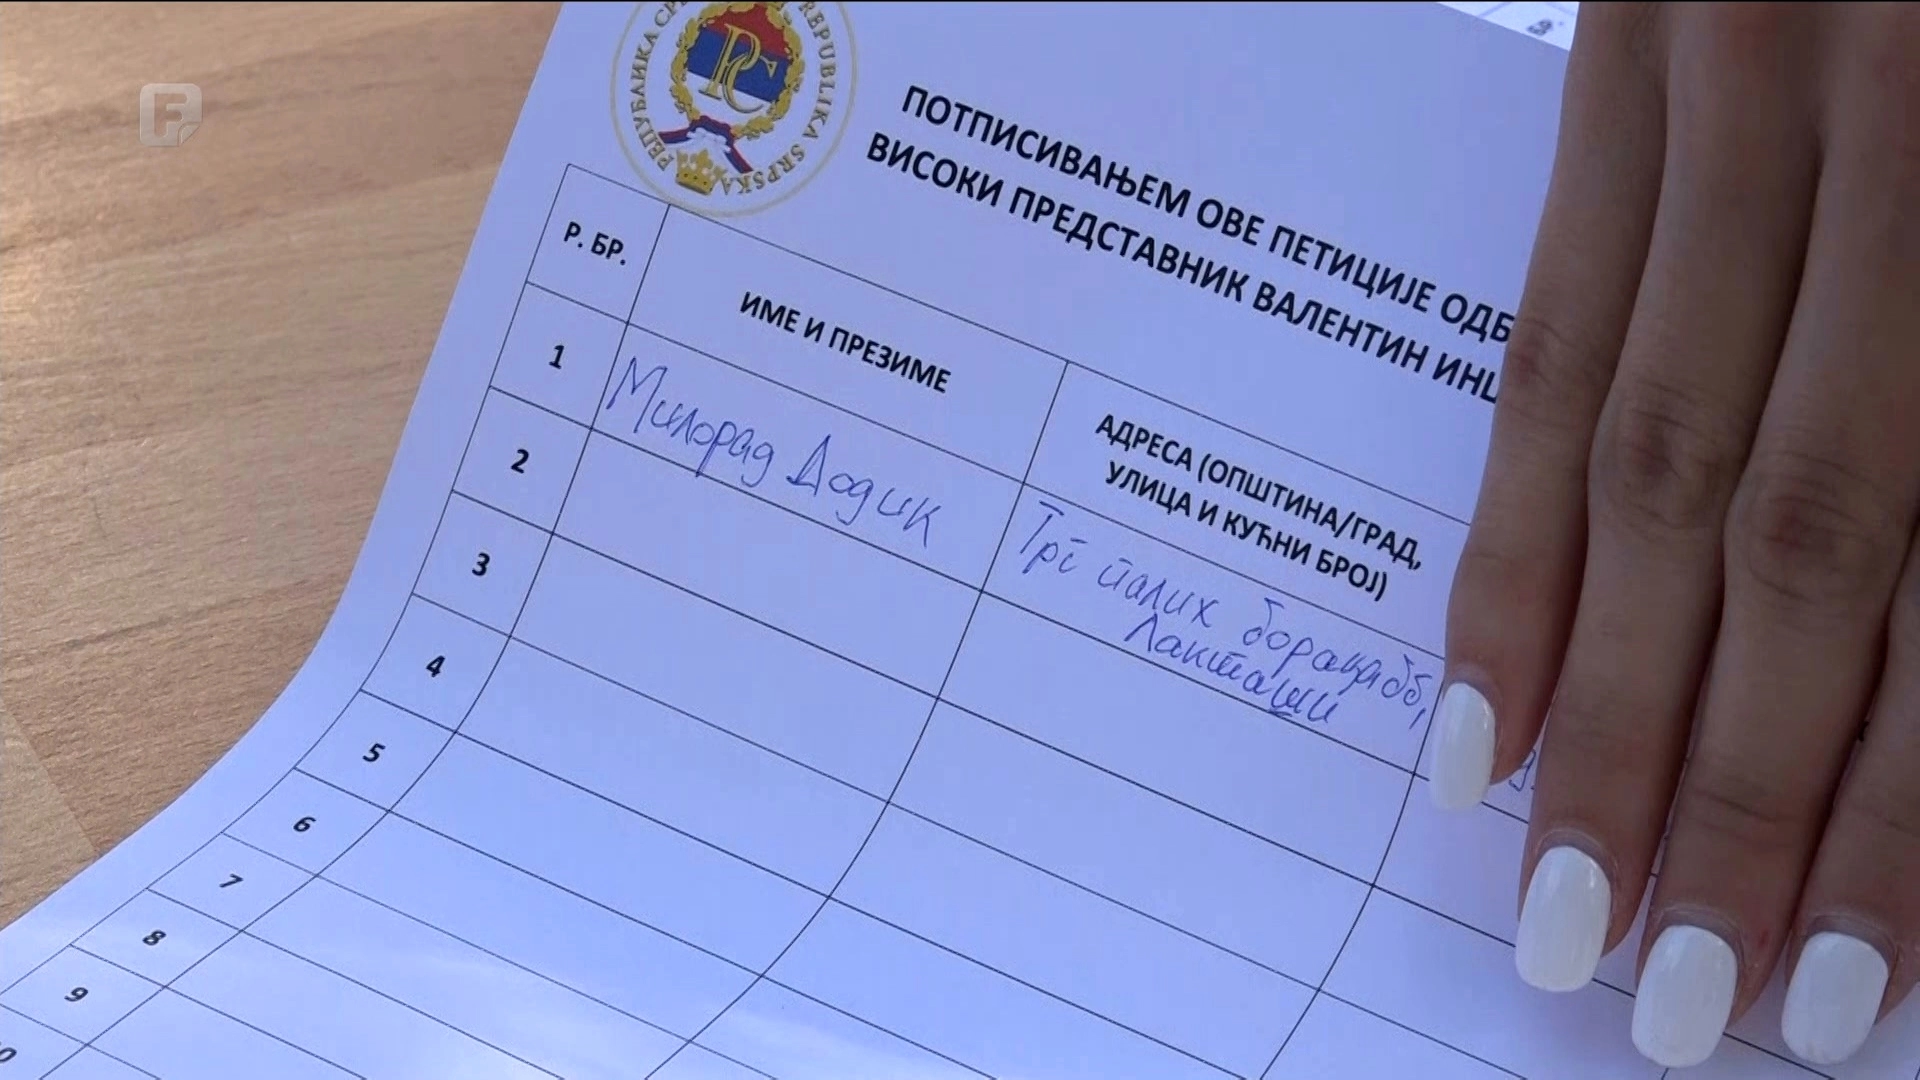 РЕПУБЛИКА СРПСКА REPUBLIKA SRPSKA
РС
F
ПОТПИСИВАЊЕМ ОВЕ ПЕТИЦИЈЕ ОДБ
ВИСОКИ ПРЕДСТАВНИК ВАЛЕНТИН ИНЦ
Р. БР.
ИМЕ И ПРЕЗИМЕ
АДРЕСА (ОПШТИНА/ГРАД,
УЛИЦА И КУЋНИ БРОЈ)
1
Милорад Додик
Трг палих бораца бб,
Лакташи
2
3
4
5
6
7
8
9